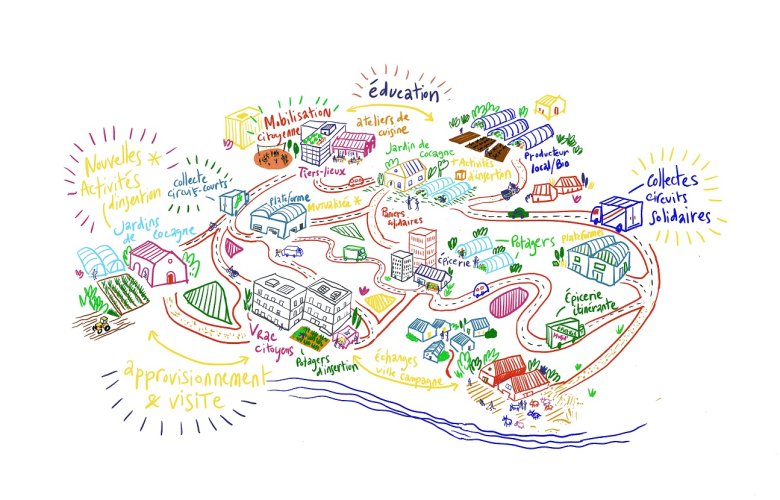 éducation
Mobilisation
citoyenne
ateliers de
cuisine
Tiers-lieux
Jardin de
Cocagne
+ Activités
d'insertion
Producteur
local/Bio
Nouvelles *
Activités
d'insertion
Collecte
circuit-courts
Jardins
de cocagne
Plateforme
Mutualisée *
Paniers
solidaires
Collectes
circuits
Solidaires
épicerie
Potagers
plateformes
Épicerie
itinérante
Vrac
citoyens
Potagers
d'insertion
Échanges
ville campagne
approvisionnement
& visite